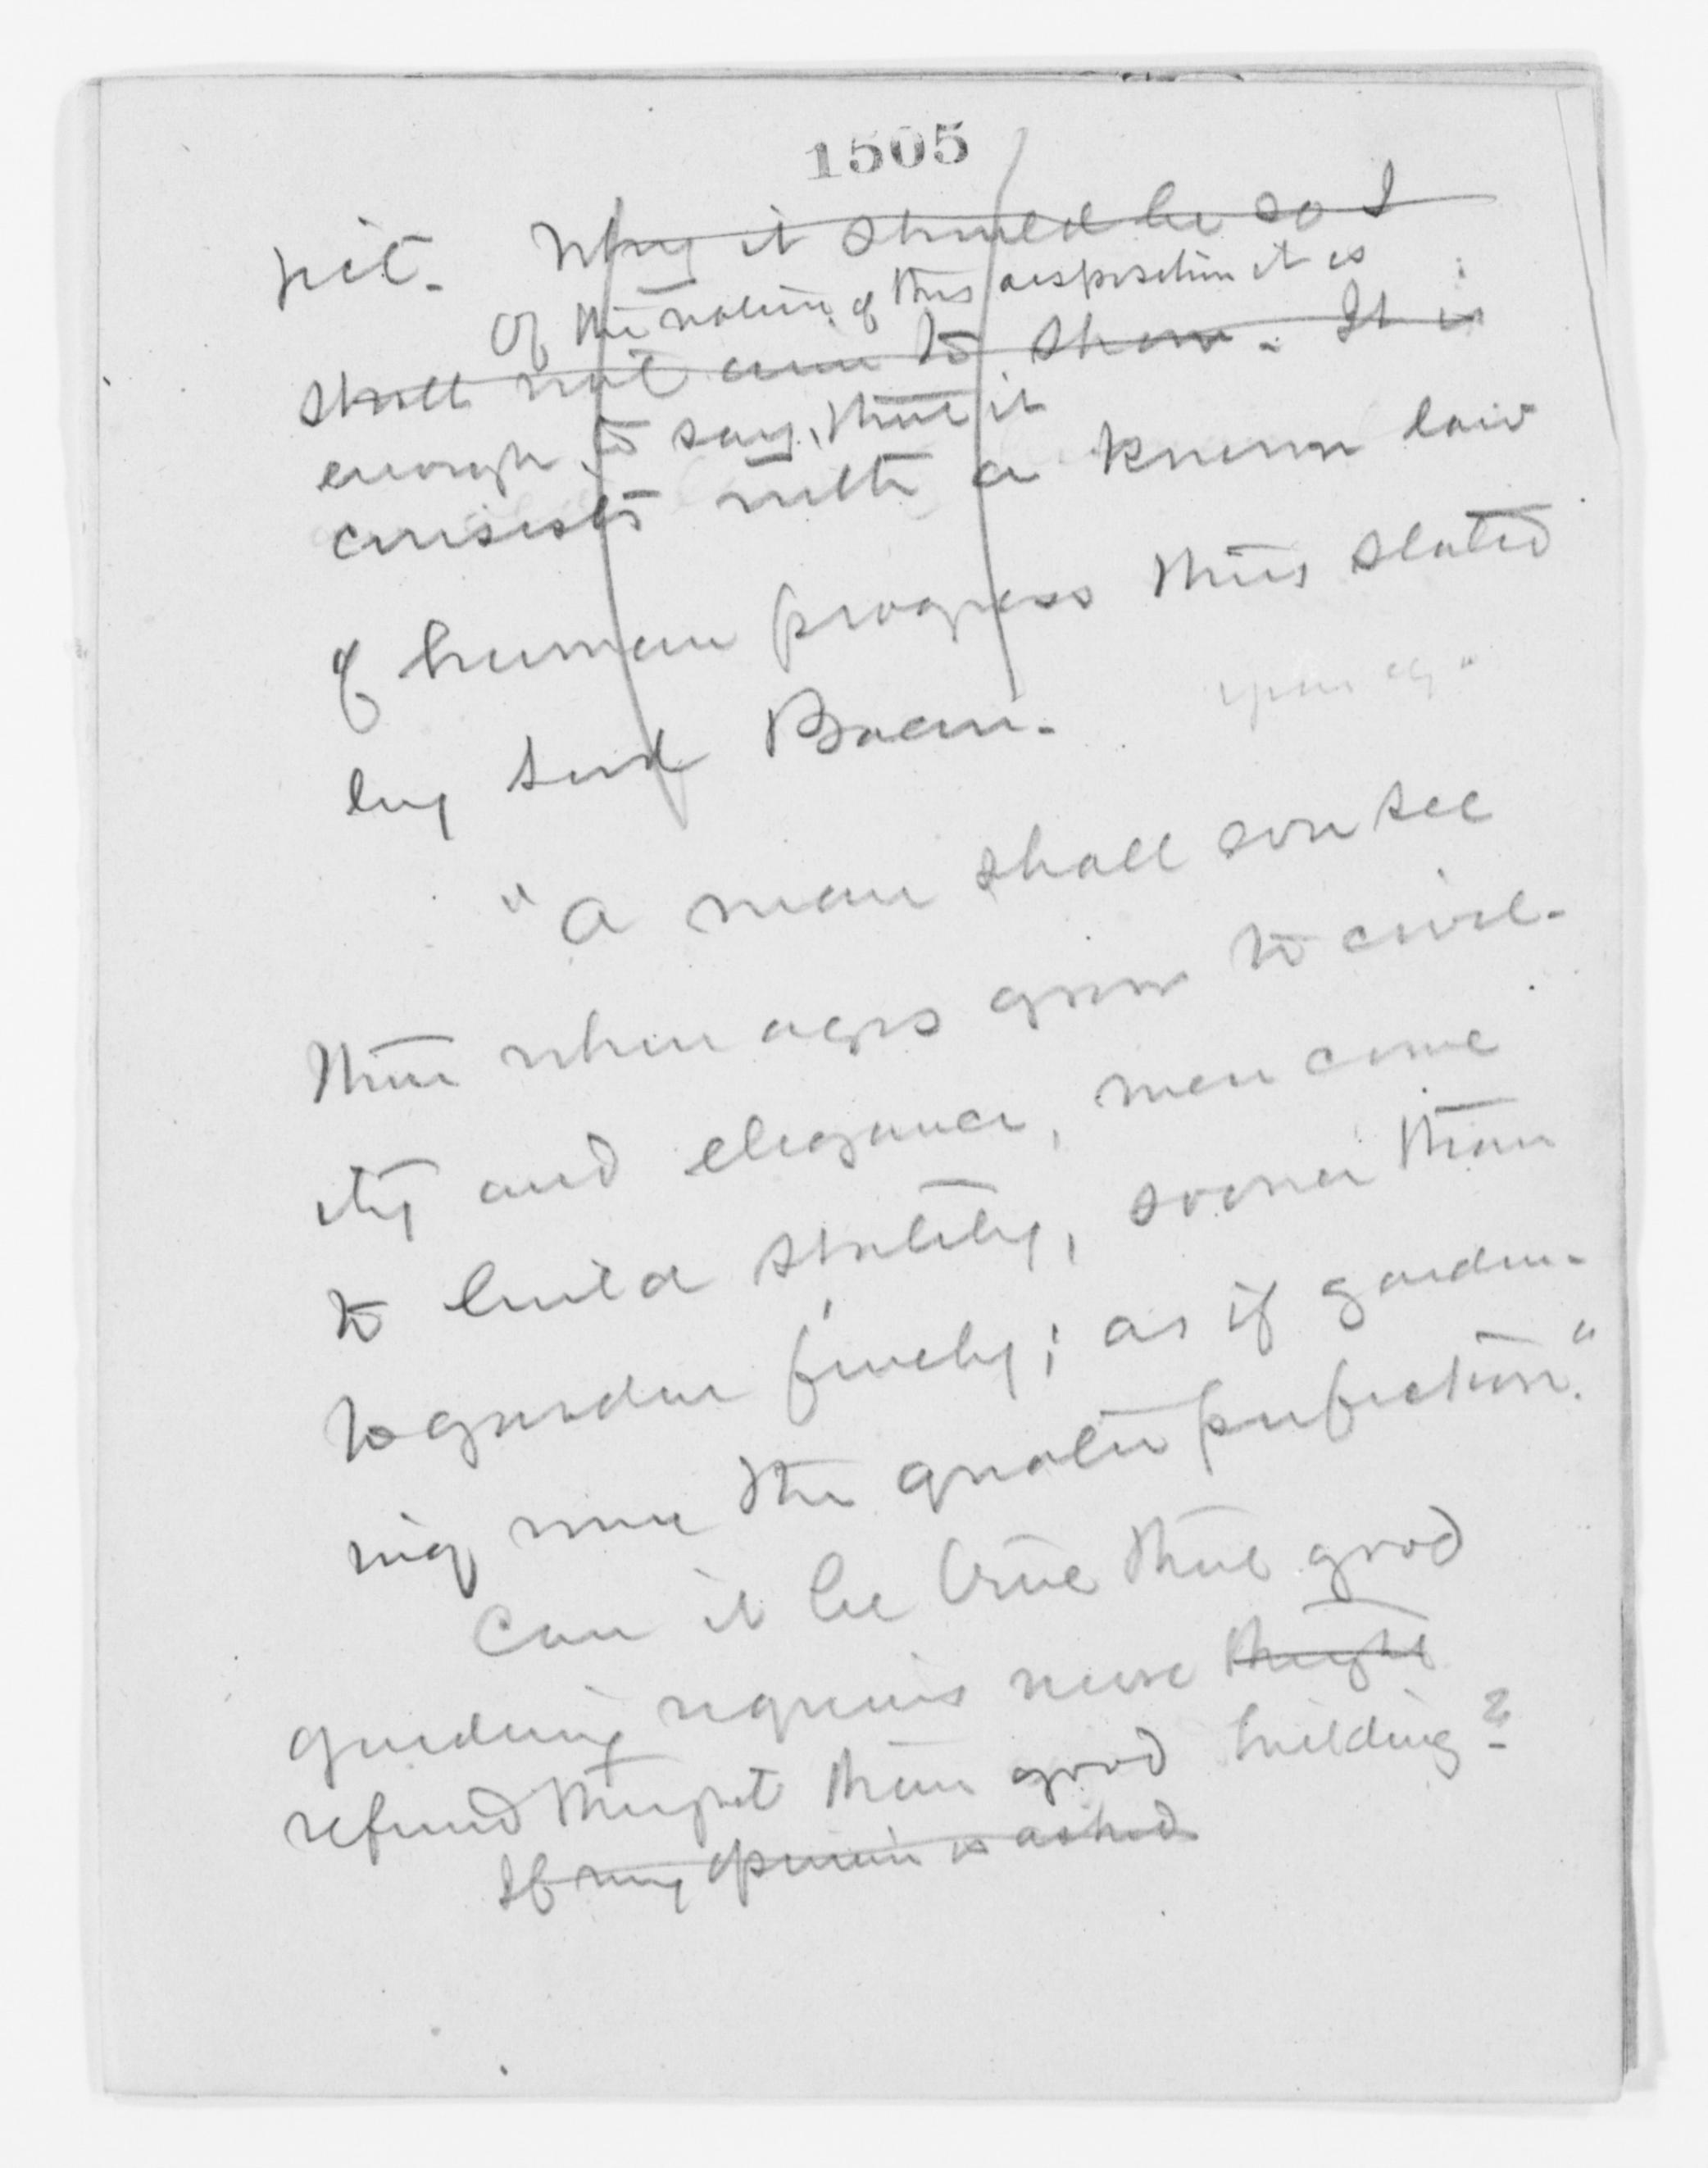 1505
pit. Why it should be so I
Of the nature of this disposition it is
shall not aim to show. It is
enough to say, that it
consists with a known law
of human progress thus stated
by Lord Bacon.
"A man shall ever see
that when ages grow to civil-
ity and elegance, men come
to build stately, sooner than
to garden finely; as if garden-
ing were the greater perfection."
Can it be true that good
gardening requires more thought
refined thought than good building?
If my opinion is asked